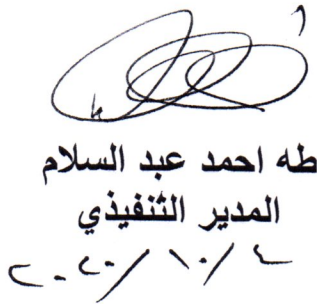 طه احمد عبد السلام
المدير التنفيذي
٢٠٢٠/١٠/٤